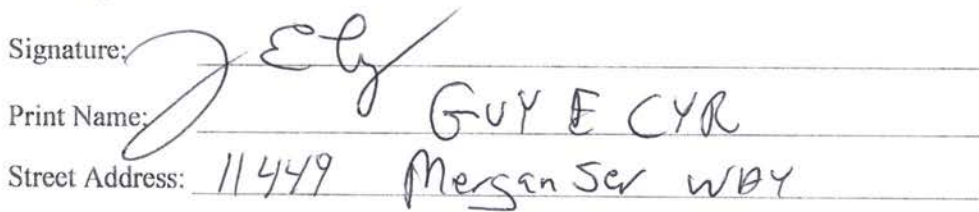 Signature:
Print Name: GUY E CYR
Street Address: 11449 Mergan Ser WAY